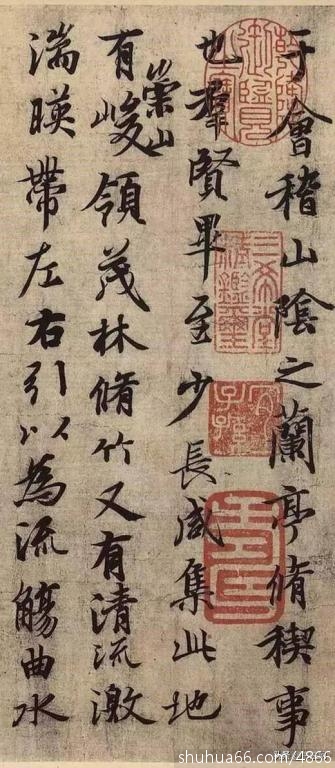 于會稽山陰之蘭亭脩稧事
也羣賢畢至少長咸集此地
有崇山峻領茂林脩竹又有清流激
湍暎帶左右引以為流觴曲水
三希堂精鑑璽
宜子孫
shuhua66.com/4866